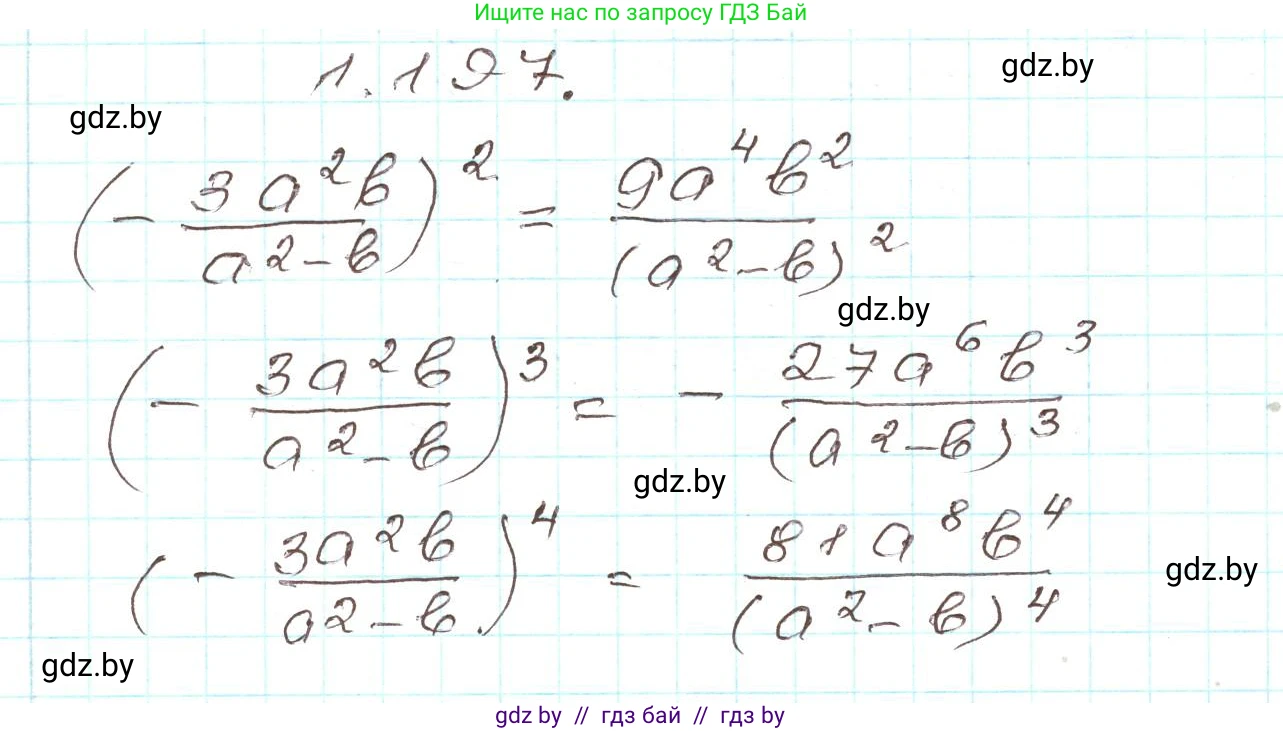 Ищите нас по запросу ГДЗ Бай
1.197.
gdz.by
gdz.by
(- 3a²b / a²-b)² = 9a⁴b² / (a²-b)²
gdz.by
(- 3a²b / a²-b)³ = - 27a⁶b³ / (a²-b)³
gdz.by
(- 3a²b / a²-b)⁴ = 81a⁸b⁴ / (a²-b)⁴
gdz.by
gdz.by
gdz by // гдз бай // гдз by